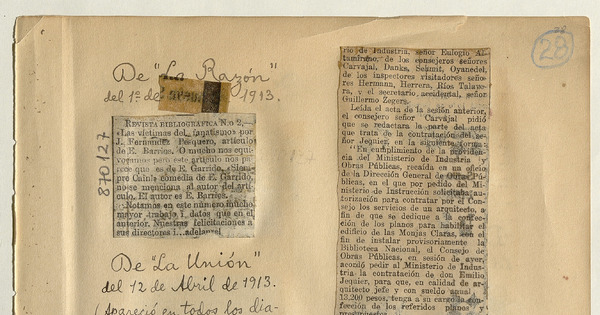 28
De "La Razón"
del 1º de 1913.
REVISTA BIBLIOGRÁFICA N.o 2,
«Las víctimas del fanatismo» por
J. Fernández Pesquero, artículo
de E. Barrios. O mucho nos equi-
vocamos pero este artículo nos pa-
rece que es de E. Garrido.
comedia de E. Garrido,
no se menciona al autor del artí-
culo. El autor es E. Barrios.
«Notamos en este número mucho
mayor trabajo i datos que en el
anterior. Nuestras felicitaciones a
sus directores i adelante!
870127
De "La Unión"
del 12 de Abril de 1913.
(Apareció en todos los dia-
rio de Industria, señor Eulogio Al-
tamirano, de los consejeros señores
Carvajal, Danks, Schmit, Oyanedel,
de los inspectores visitadores seño-
res Hermann, Herrera, Ríos Talave-
ra, y el secretario accidental, señor
Guillermo Zegers.
Leída el acta de la sesión anterior,
el consejero señor Carvajal pidió
que se redactara la parte del acta
que trata de la contratación del se-
ñor Jequier, en la siguiente forma:
"En cumplimiento de la providen-
cia del Ministerio de Industria y
Obras Públicas, recaída en un oficio
de la Dirección General de Obras Pú-
blicas, en el que por pedido del Mi-
nisterio de Instrucción solicitaba au-
torización para contratar por el Con-
sejo los servicios de un arquitecto, a
fin de que se dedique a la confec-
ción de los planos para habilitar el
edificio de las Monjas Claras, con el
fin de instalar provisoriamente la
Biblioteca Nacional, el Consejo de
Obras Públicas, en sesión de ayer,
acordó pedir al Ministerio de Indus-
tria la contratación de don Emilio
Jequier, para que, en calidad de ar-
quitecto jefe y con sueldo anual
13.200 pesos, tenga a su cargo la con-
fección de los referidos planos y
presupuestos